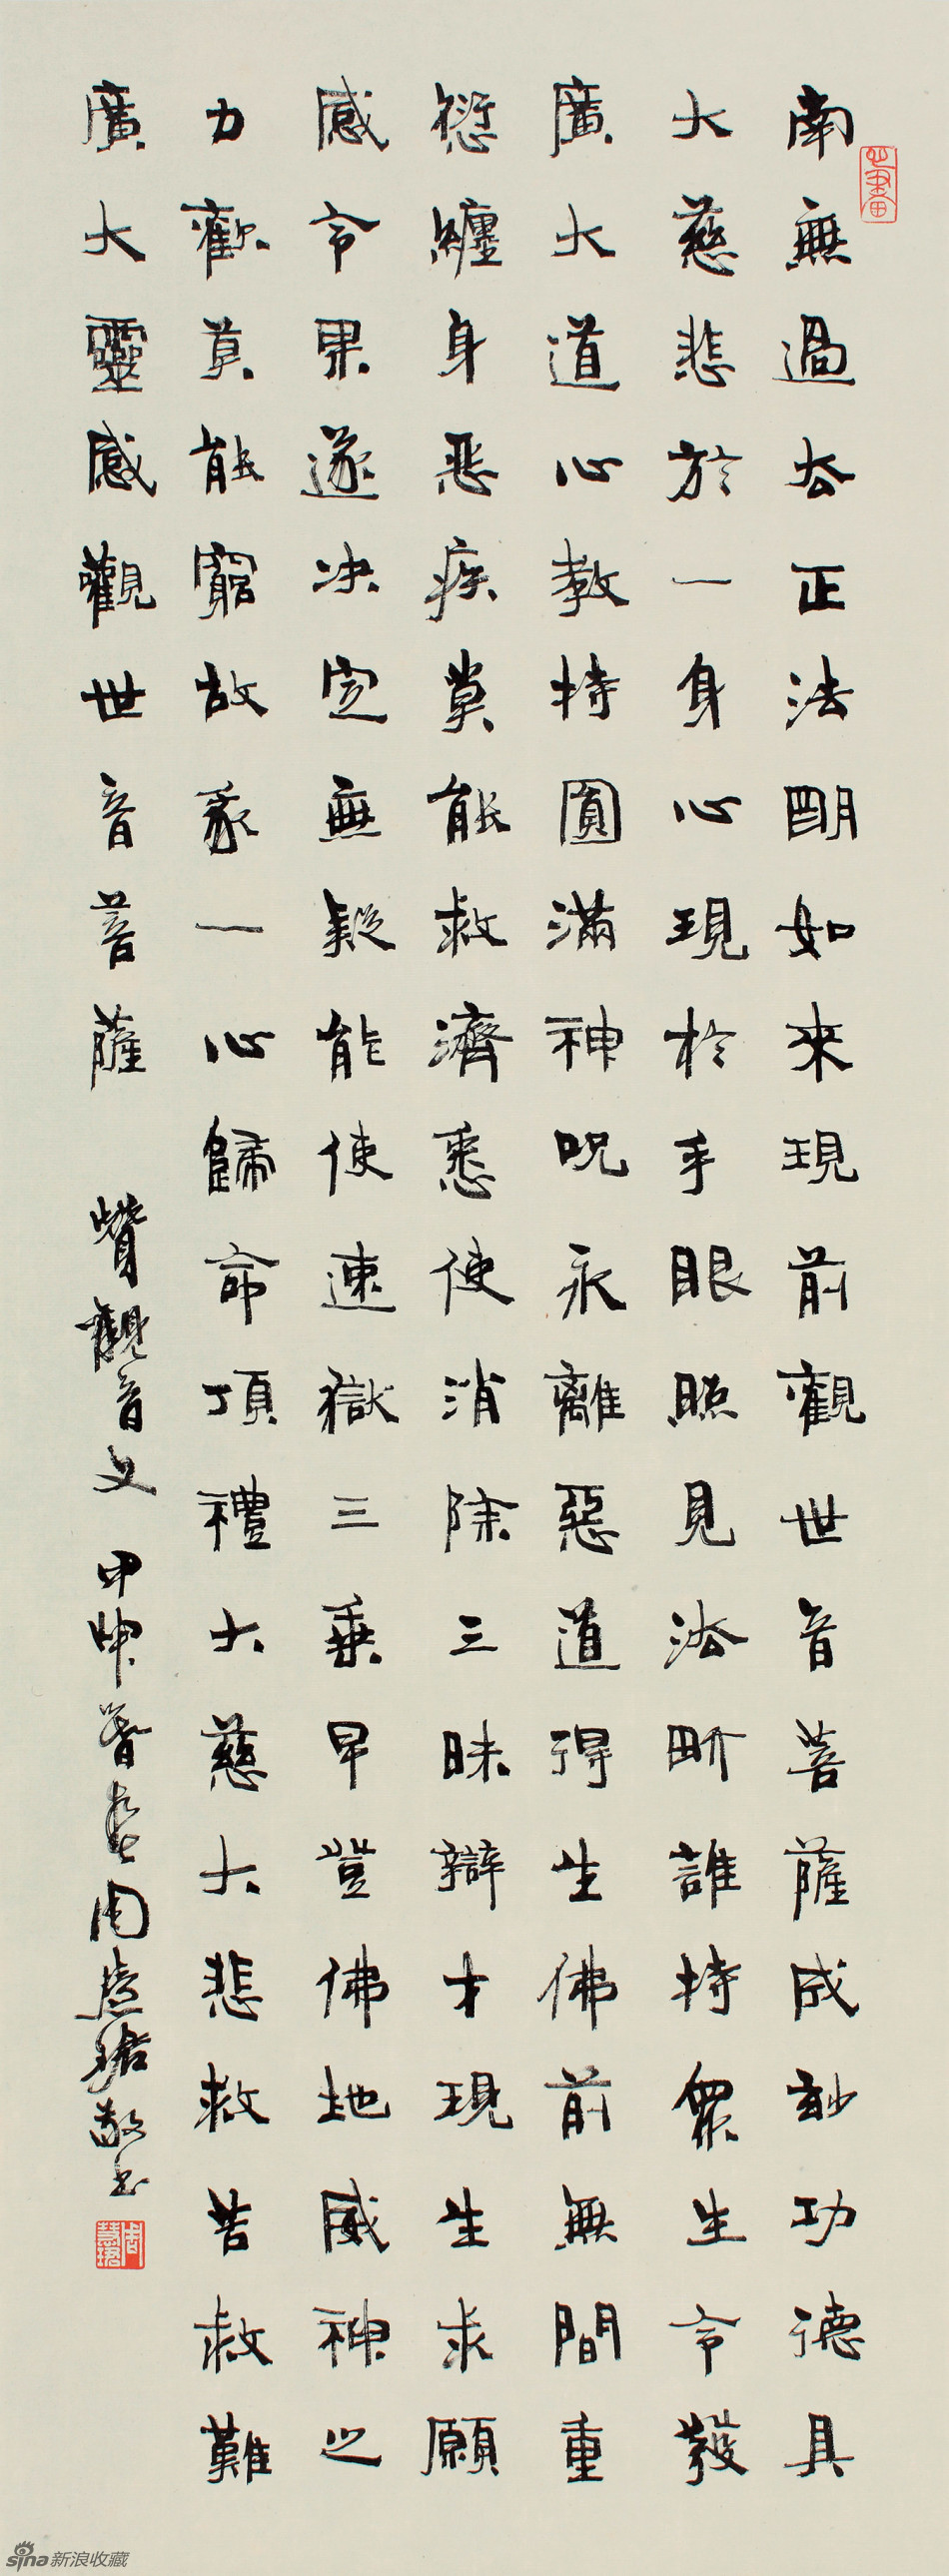 南無過去正法明如來現前觀世音菩薩成妙功德具
大慈悲於一身心現於手眼照見法界誰持眾生令發
廣大道心教持圓滿神呪永離惡道得生佛前無間重
愆纏身惡疾莫能救濟悉使消除三昧辯才現生求願
感令果遂决定無疑能使速獄三乘早登佛地威神之
力歡莫能窮故我一心歸命頂禮大慈大悲救苦救難
廣大靈感觀世音菩薩 贊觀音文 甲申 周慧珺敬书
周慧珺
sina新浪收藏